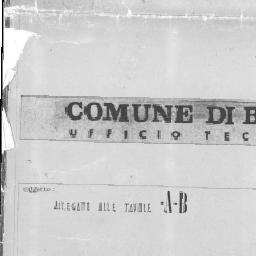 COMUNE DI B
UFFICIO TEC
oggetto:
ALLEGATO ALLE TAVOLE "A-B